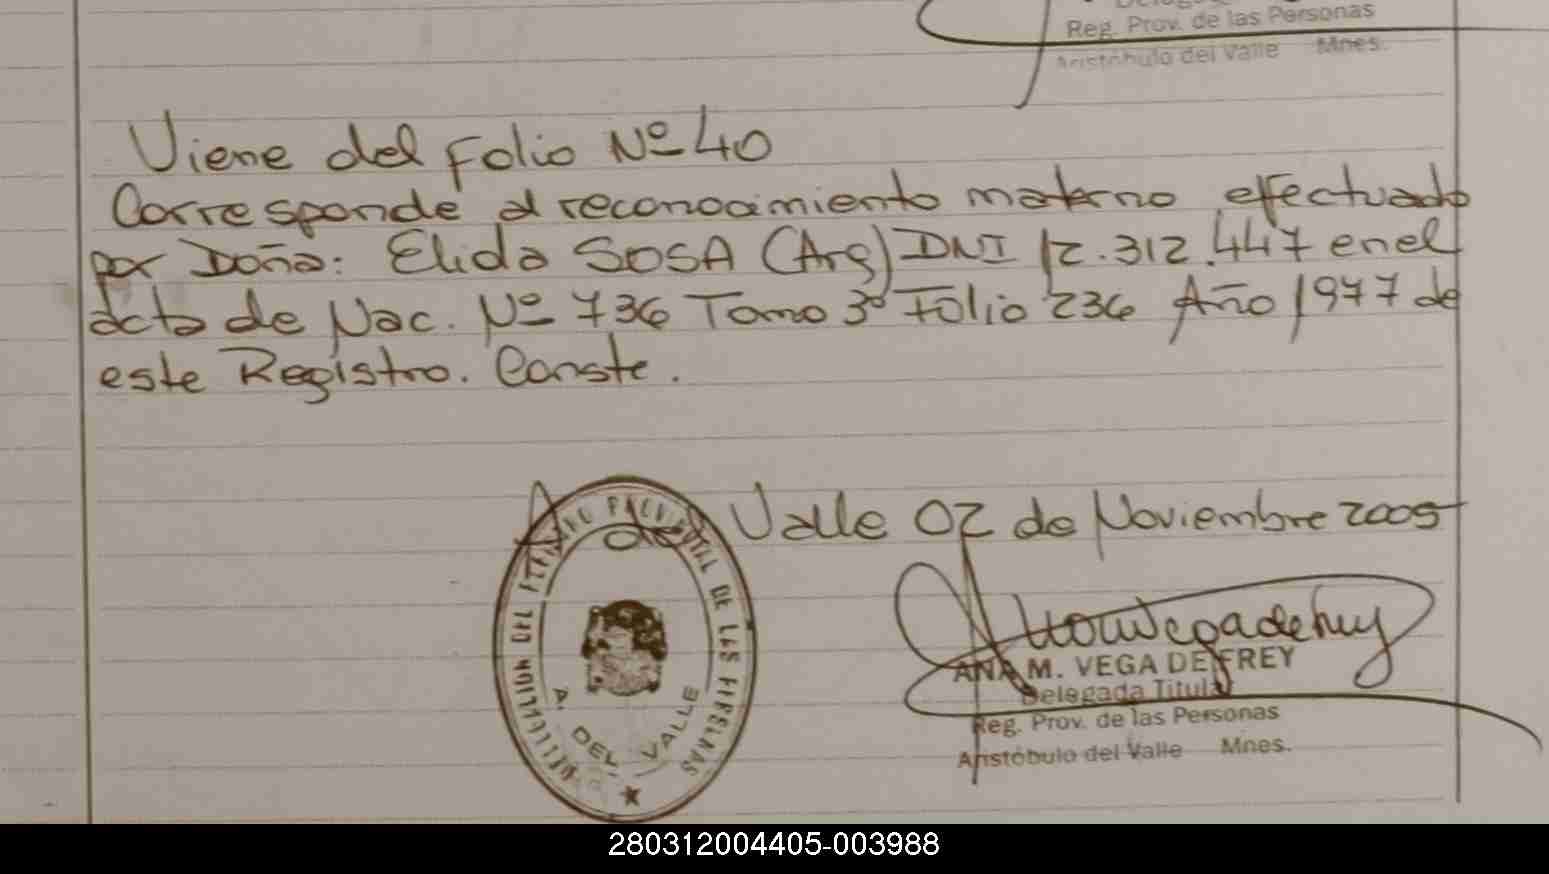 Reg. Prov. de las Personas
Aristóbulo del Valle Mnes.
Viene del Folio Nº 40
Corresponde al reconocimiento materno efectuado
por Doña: Elida SOSA (Arg) DNI 12.312.447 en el
acta de Nac. Nº 736 Tomo 3º Folio 236 Año 1977 de
este Registro. Conste.
A. del Valle 02 de Noviembre 2005
DELEGACION DEL REGISTRO PROVINCIAL DE LAS PERSONAS
A. DEL VALLE
ANA M. VEGA DE FREY
Delegada Titular
Reg. Prov. de las Personas
Aristóbulo del Valle Mnes.
280312004405-003988